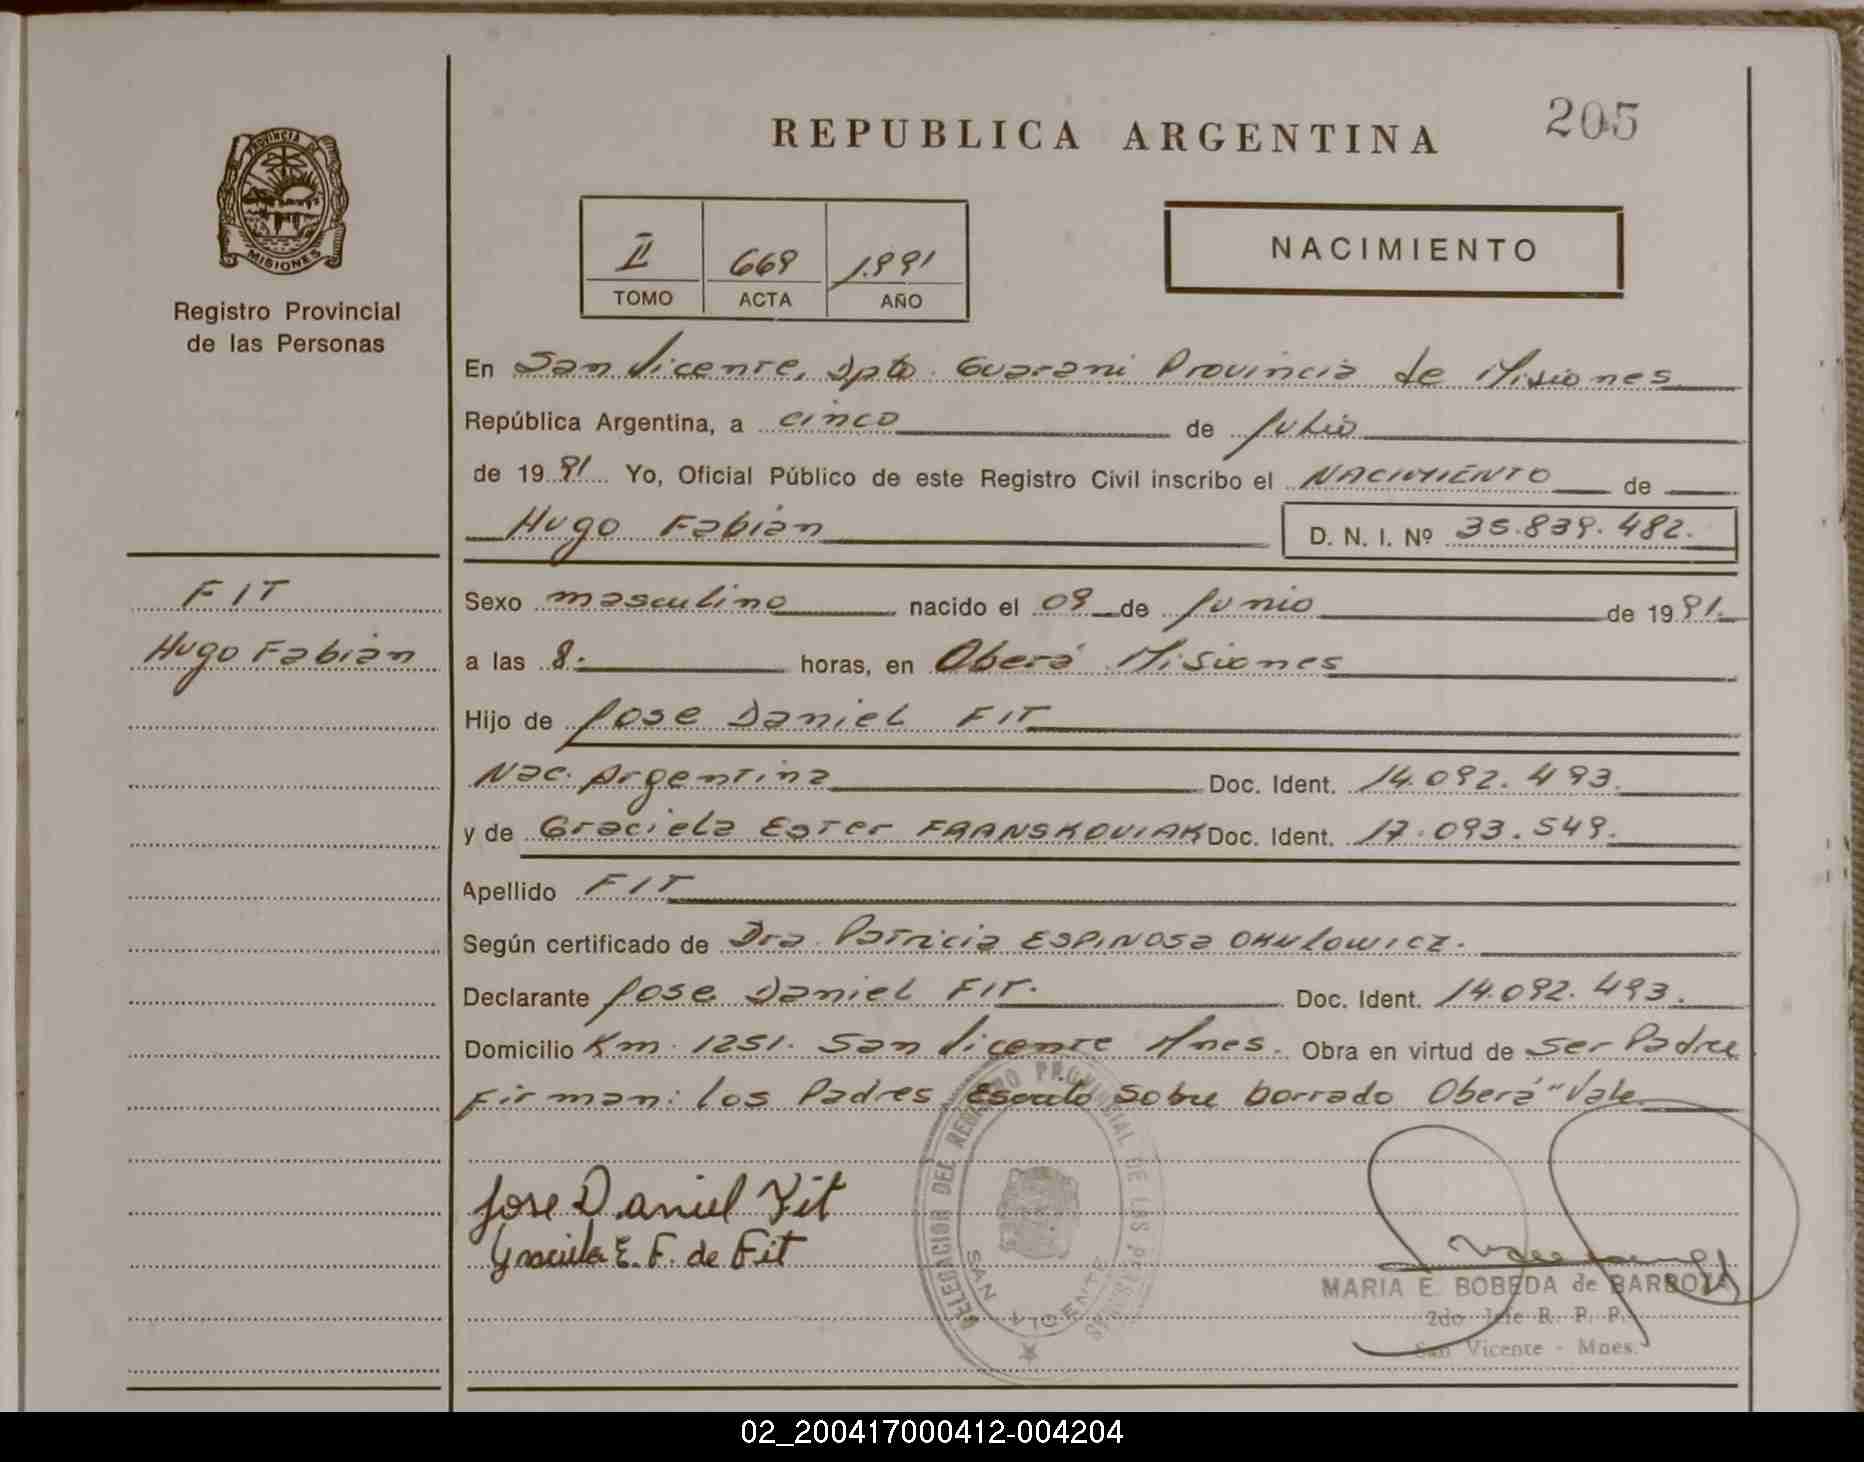 205
REPUBLICA ARGENTINA
PROVINCIA DE
MISIONES
Registro Provincial
de las Personas
II 669 1.991
TOMO ACTA AÑO
NACIMIENTO
En San Vicente, Dpto. Guarani Provincia de Misiones
República Argentina, a cinco de Julio
de 1991 Yo, Oficial Público de este Registro Civil inscribo el NACIMIENTO de
Hugo Fabian D. N. I. Nº 35.839.482.
FIT
Hugo Fabian
Sexo masculino nacido el 09 de Junio de 1991.
a las 8.- horas, en Oberá Misiones
Hijo de Jose Daniel FIT
Nac. Argentina Doc. Ident. 14.092.493.
y de Graciela Ester FRANSKOVIAK Doc. Ident. 17.093.549.
Apellido FIT
Según certificado de Dra. Patricia ESPINOSA OKULOWICZ.
Declarante Jose Daniel FIT. Doc. Ident. 14.092.493.
Domicilio Km. 1251. San Vicente Mnes. Obra en virtud de ser Padre
Firman: los Padres Escrito sobre borrado Oberá" Vale
Jose Daniel Fit
Graciela E. F. de Fit
DELEGACION DEL REGISTRO PROVINCIAL DE LAS PERSONAS
SAN VICENTE
MARIA E. BOBEDA de BARBOZA
2do Jefe R. P. P.
San Vicente - Mnes.
02_200417000412-004204